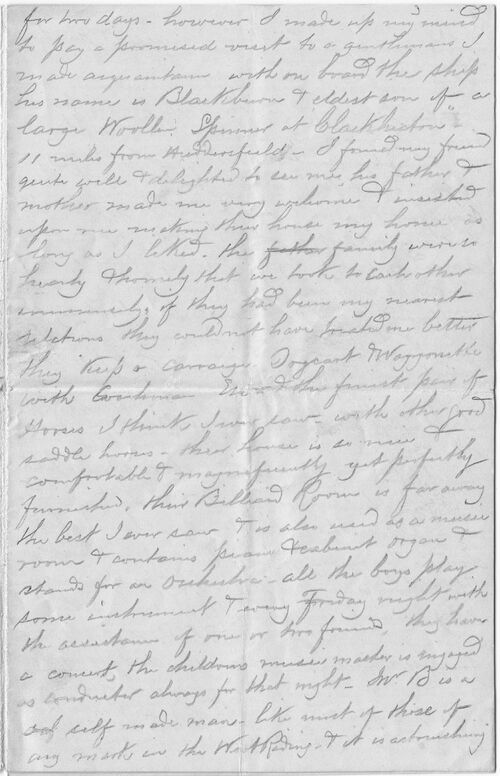 for two days - however I made up my mind
to pay a promised visit to a gentleman I
made acquaintance with on board the ship
his name is Blackburn & eldest son of a
large Woollen Spinner at Cleckheaton -
11 miles from Huddersfield - I found my friend
quite well & delighted to see me his father &
mother made me very welcome & insisted
upon me making their house my home as
long as I liked. the father family were so
hearty & homely that we took to each other
immensely, if they had been my nearest
relations they could not have treated me better
they keep a carriage Dogcart & Waggonette
with Coachman & the finest pair of
Horses I think I ever saw - with other good
saddle horses - their house is so nice &
comfortable & magnificently yet perfectly
furnished, their Billiard Room is far away
the best I ever saw & is also used as a music
room & contains piano & cabinet organ &
stands for an Orchestra - all the boys play
some instrument & every Friday night with
the assistance of one or two friends, they have
a concert, the childrens music master is engaged
as conductor always for that night - Mr B is a
self made man - like most of those of
any mark in the West Riding - & it is astonishing